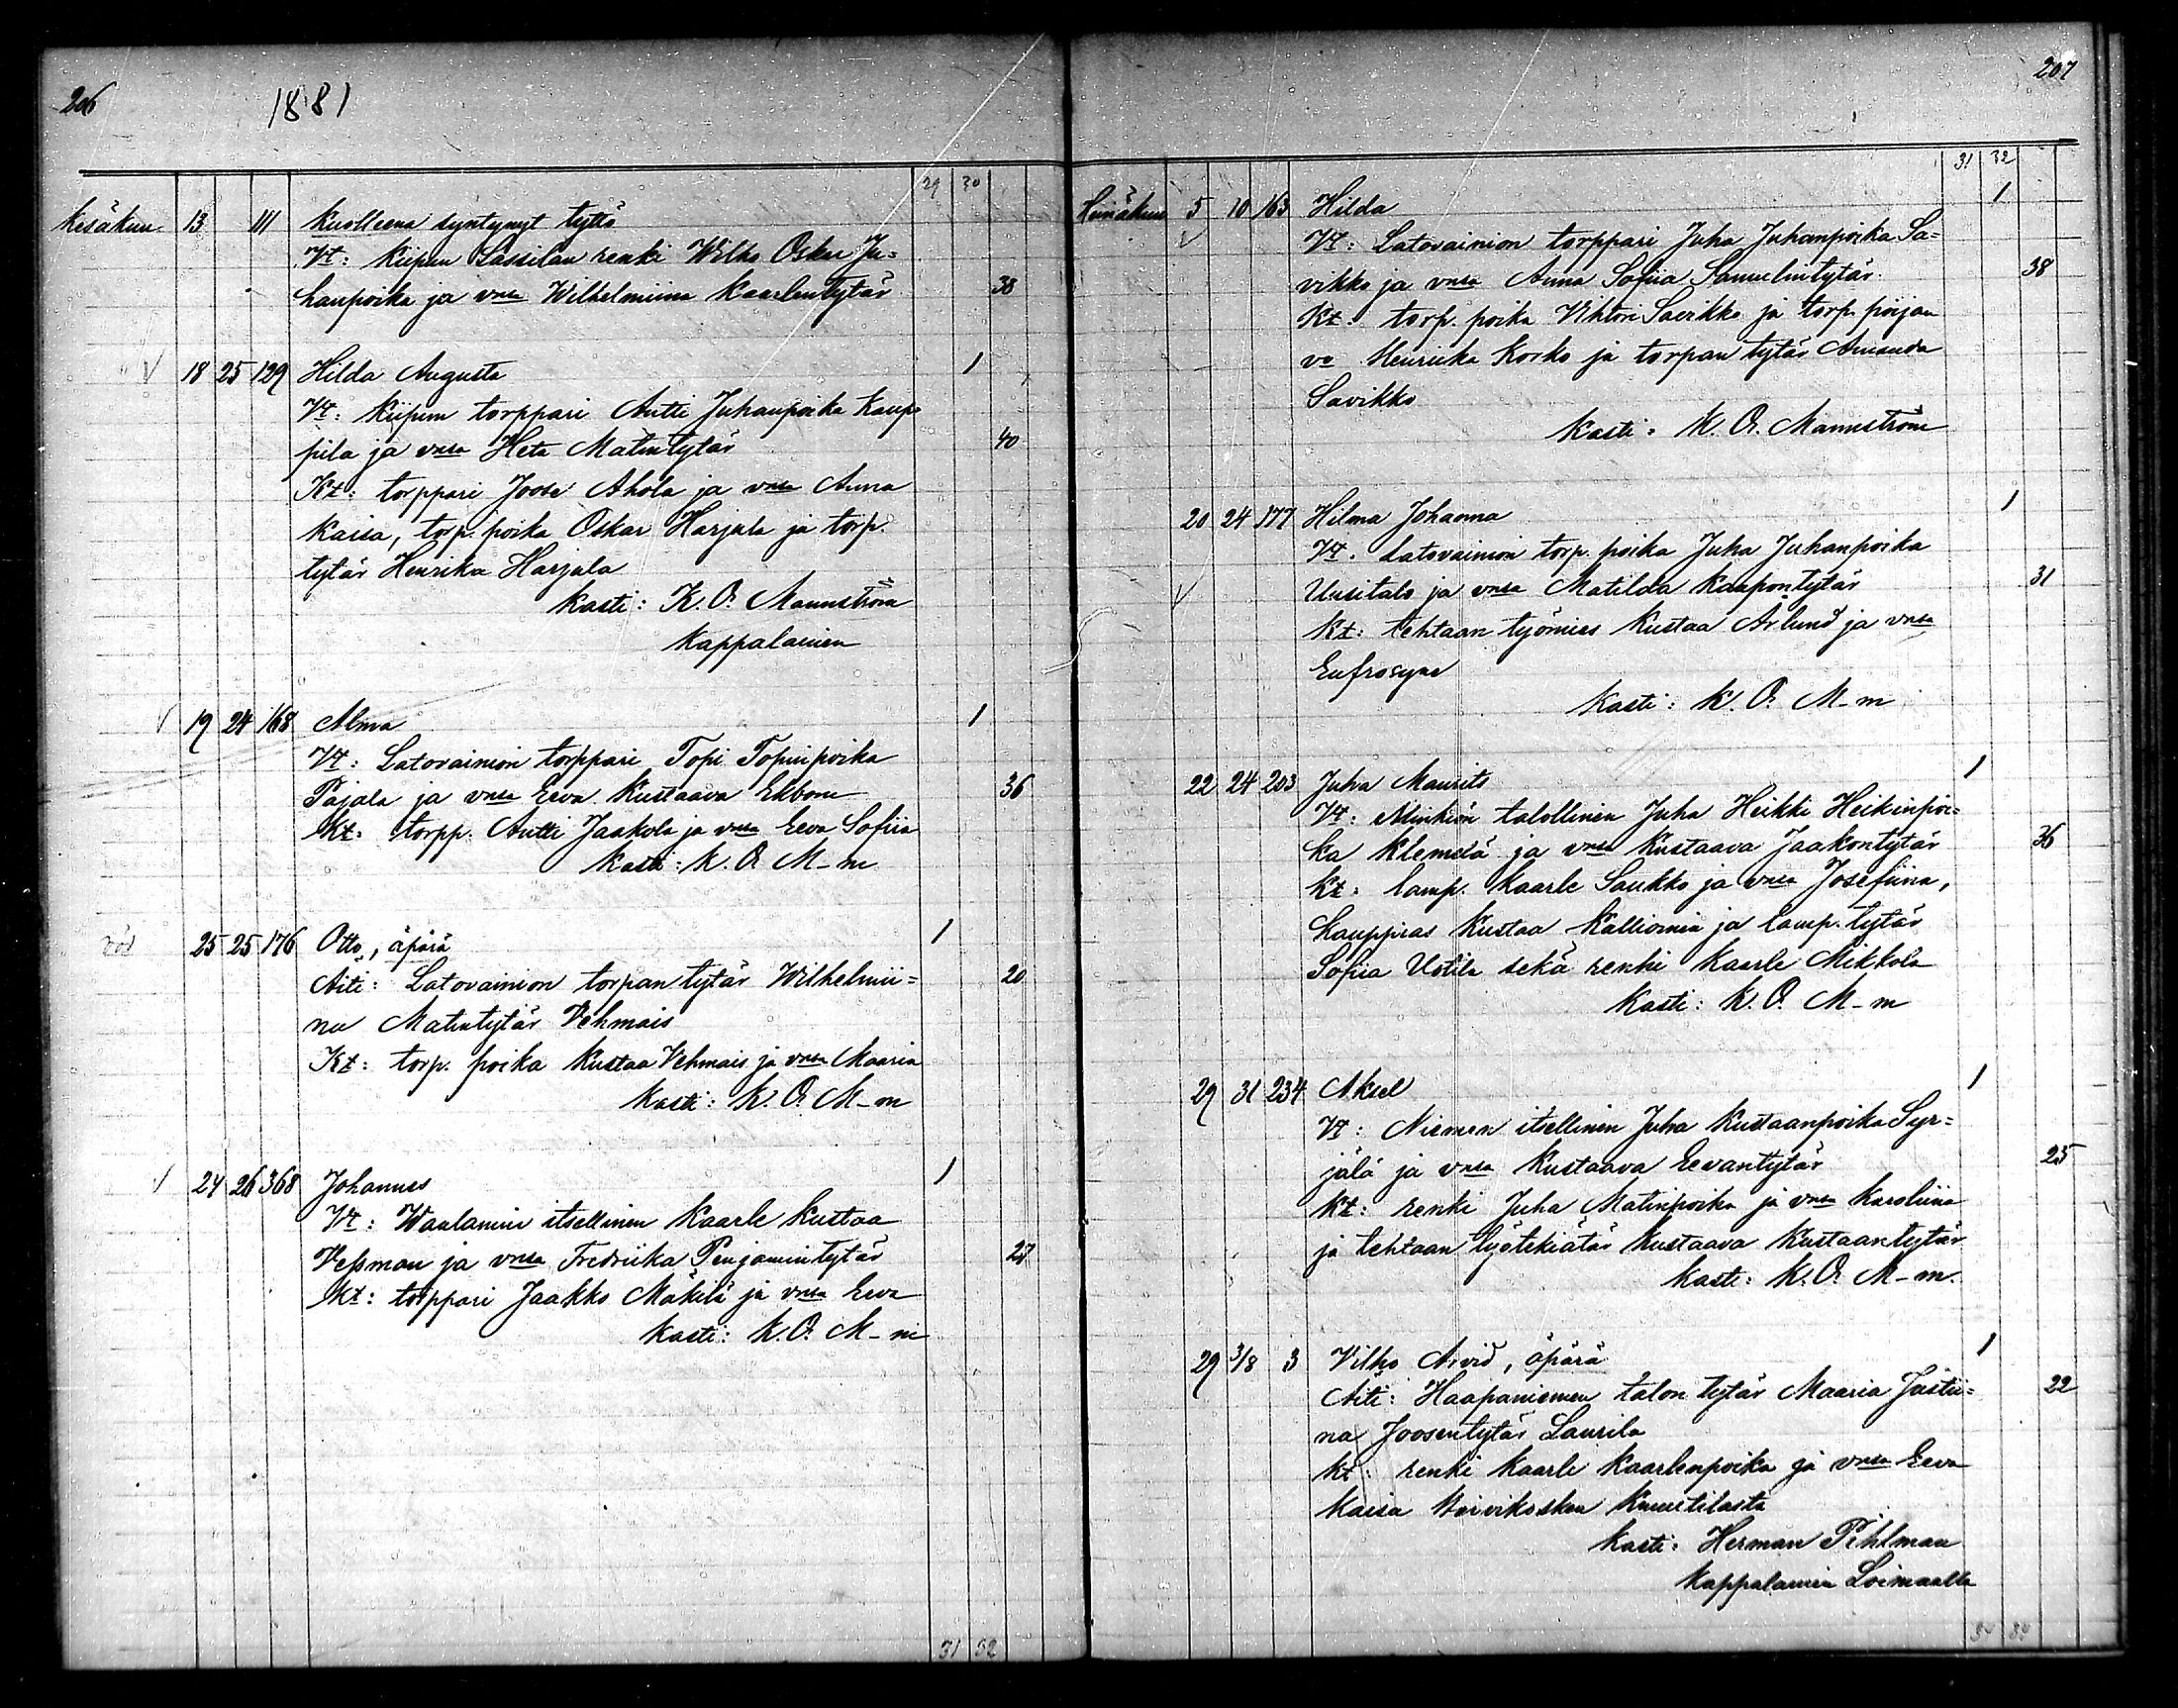 206
1881
29 30
Kesäkuu 13 111 Kuolleena syntynyt tyttö
Vt: Kiipun Lassilan renki Wilho Oskar Ju=
hanpoika ja vmsa Wilhelmiina Kaarlentytär 38
V 18 25 129 Hilda Augusta 1
Vt: Kiipun torppari Antti Juhanpoika Kaup=
pila ja vmsa Heta Matintytär 40
Kt: torppari Joose Ahola ja vmsa Anna
Kaisa, torp. poika Oskar Harjala ja torp.
tytär Henrika Harjala
Kasti: K. O. Mannström
Kappalainen
V 19 24 168 Alma 1
Vt: Latovainion torppari Topi Topinpoika
Pajala ja vmsa Eeva Kustaava Ekbom 36
Kt: torpp. Antti Jaakola ja vmsa Eeva Sofiia
Kasti: K. O. M-m
25 25 176 Otto, äpärä 1
Äiti: Latovainion torpan tytär Wilhelmii= 20
na Matintytär Vehmais
Kt: torp. poika Kustaa Vehmais ja vmsa Maaria
Kasti: K. O. M-m
V 24 26 368 Johannes 1
Vt: itsellinen Kaarle Kustaa
Vessman ja vmsa Fredriika Penjamintytär 27
Kt: torppari Jaakko Mäkelä ja vmsa Eeva
Kasti: K. O. M-m
31 32
207
31 32
Heinäkuu 5 10 163 Hilda 1
V Vt: Latovainion torppari Juha Juhanpoika Sa=
vikko ja vmsa Anna Sofiia Samuelintytär 38
Kt: torp. poika Vihtori Savikko ja torp. pojan
vo Henriika Korko ja torpan tytär Amanda
Savikko
Kasti: K. O. Mannström
20 24 177 Hilma Johanna 1
Vt. Latovainion torp. poika Juha Juhanpoika
V Uusitalo ja vmsa Matilda Kaapontytär 31
Kt: tehtaan työmies Kustaa Arlund ja vmsa
Eufrosyne
Kasti: K. O. M-m
22 24 203 Juha Maurits 1
Vt: Minkiön talollinen Juha Heikki Heikinpoi=
ka Klemelä ja vmsa Kustaava Jaakontytär 36
Kt: lamp. Kaarle Saukko ja vmsa Josefiina,
Kauppias Kustaa Kallioinen ja lamp. tytär
Sofiia Uotila sekä renki Kaarle Mikkola
Kasti: K. O. M-m
29 31 234 Aksel 1
Vt: Niemen itsellinen Juha Kustaanpoika Syr=
jälä ja vmsa Kustaava Eevantytär 25
Kt: renki Juha Matinpoika ja vmsa Karoliina
ja tehtaan työtekiätär Kustaava Kustaantytär
Kasti: K. O. M-m.
29 3/8 3 Vilho Arvid, äpärä 1
Äiti: Haapaniemen talon tytär Maaria Justii= 22
na Joosentytär Laurila
Kt: renki Kaarle Kaarlenpoika ja vmsa Eeva
Kaisa Knuutilasta
Kasti: Herman Pihlman
Kappalainen Loimaalla